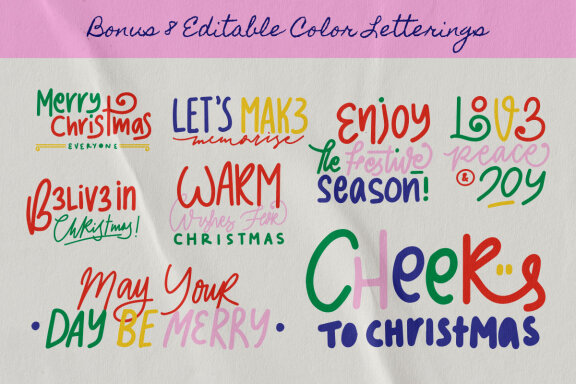 Bonus 8 Editable Color Letterings
Merry
Christmas
EVERYONE
LET'S MAK3
memorise
Enjoy
the festive
season!
LOV3
peace
& JOY
B3LIV3 in
Christmas!
WARM
Wishes For
CHRISTMAS
May Your
DAY BE MERRY
CHeeRs
TO CHRISTMAS